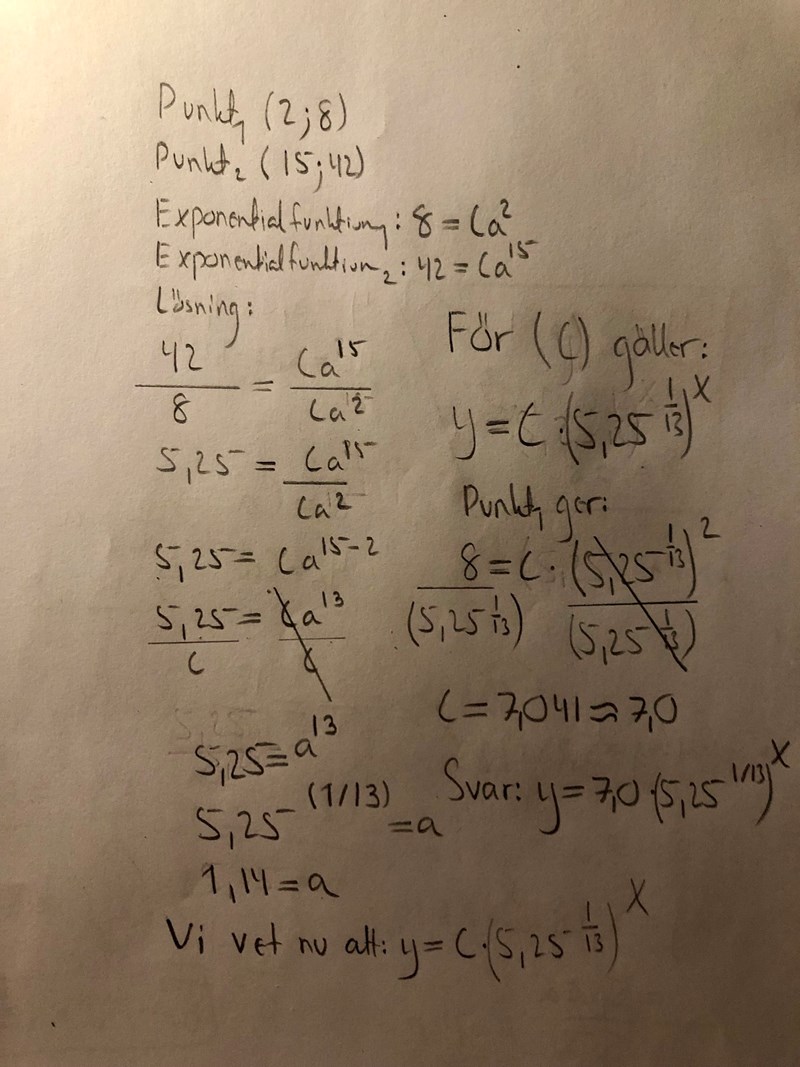 Punkt₁ (2;8)
Punkt₂ (15;42)
Exponentialfunktion₁: 8 = Ca²
Exponentialfunktion₂: 42 = Ca¹⁵
Lösning:
42/8 = Ca¹⁵/Ca²
5,25 = Ca¹⁵/Ca²
5,25 = Ca¹⁵⁻²
5,25/C = Ca¹³/C
5,25 = a¹³
5,25^(1/13) = a
1,14 = a
Vi vet nu att: y = C·(5,25^(1/13))^x
För (C) gäller:
y = C·(5,25^(1/13))^x
Punkt₁ ger:
8/(5,25^(1/13)) = C·(5,25^(1/13))²/(5,25^(1/13))
C = 7,041 ≈ 7,0
Svar: y = 7,0·(5,25^(1/13))^x